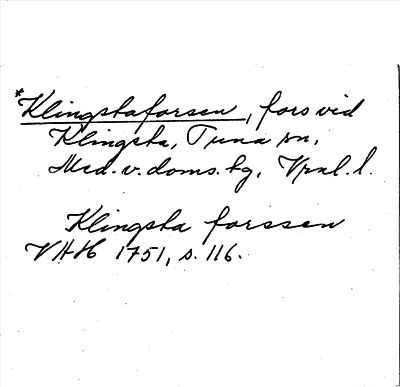 *Klingstaforsen, fors vid
Klingsta, Tuna sn,
Med. v. doms. tg, Vrnl. l.
Klingsta forssen
VAH 1751, s. 116.